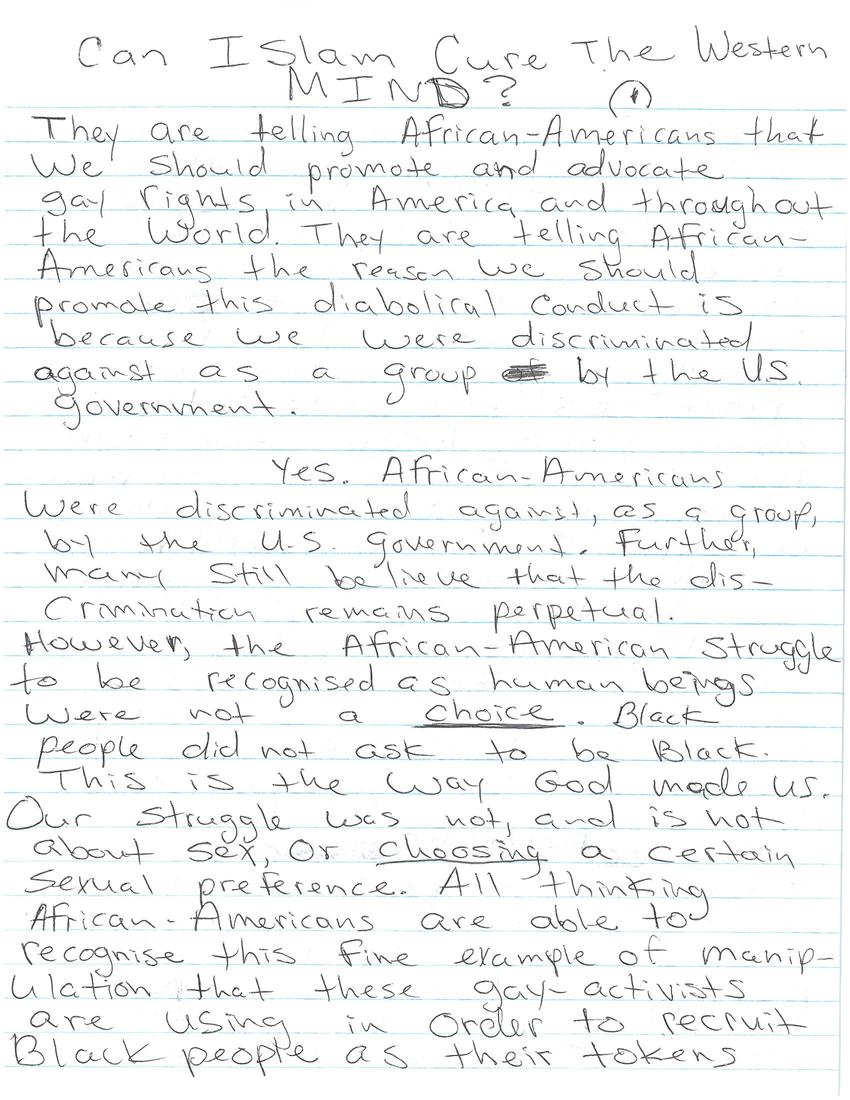 Can ISlam Cure The Western
MIND? 1
They are telling African-Americans that
We should promote and advocate
gay rights in America and throughout
the World. They are telling African-
Americans the reason we should
promote this diabolical conduct is
because we were discriminated
against as a group by the U.S.
government.
Yes. African-Americans
Were discriminated against, as a group,
by the U.S. government. Further,
many still believe that the dis-
crimination remains perpetual.
However, the African-American Struggle
to be recognised as human beings
were not a choice. Black
people did not ask to be Black.
This is the way God made us.
Our struggle was not, and is not
about sex, or choosing a certain
sexual preference. All thinking
African-Americans are able to
recognise this fine example of manip-
ulation that these gay-activists
are using in order to recruit
Black people as their tokens